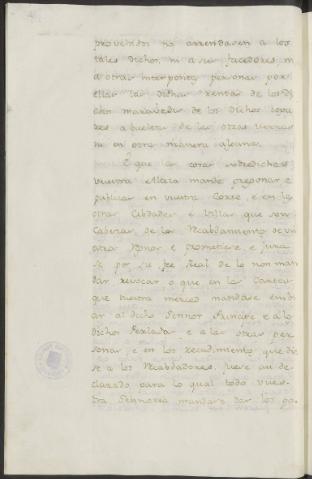 proveindos no arrendasen a los
tales dichos, ni a sus facedores, ni
a otras interpositas personas por
ellas las dichas rentas de los di
chos maravedis de los dichos logu
res abueltas de las otras rentas
ni en otra manera alguna.
E que las cosas sobredichas
vuestra Alteza mande pregonar e
publicar en vuestra Corte, e en las
otras Cibdades e Villas que son
Cabezas de los Recabdamientos de vu
estra Señor e prometiere, e jura
se por su fee Real de lo non man
dar revocar o que en las Cartas
que vuestra merced mandare embi
ar al dicho Señor Principe e a los
dichos Perlados e a las otras per
sonas e en los recudimientos que di
se a los Recabdadores, fuese asi de
clarado para lo qual todo vues
tra Señoria mandare dar los po.